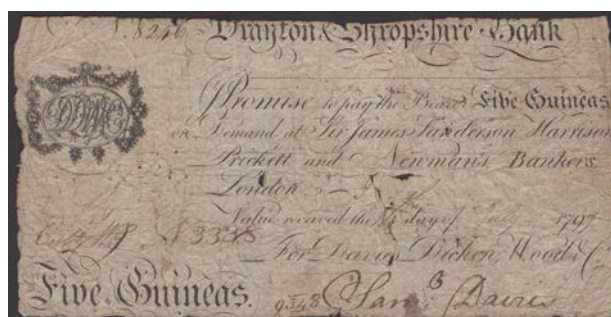 N. 8246 Drayton & Shropshire Bank
I Promise to pay the Bearer Five Guineas
on Demand at Sir James Sanderson Harrison
Prickett and Newman's Bankers
London
Value received the day of July 1797
N 3338 For Davies Dicken, Wood & Co
Five Guineas. Saml Davies